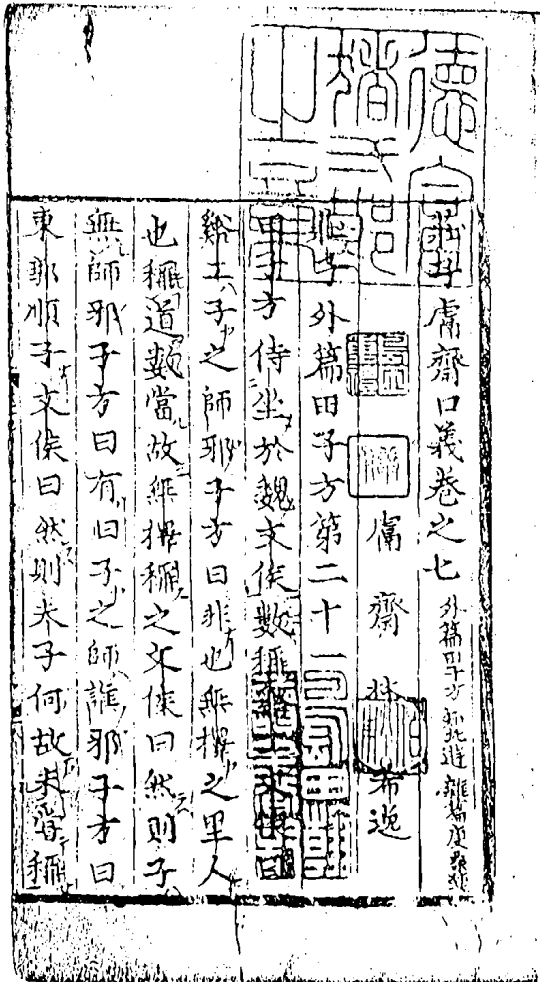 莊子鬳齋口義卷之七 外篇田子方 知北遊 雜篇庚桑楚
鬳齋 林 希逸
莊子外篇田子方第二十一
田子方侍坐於魏文侯數稱谿工文侯曰
谿工子之師邪子方曰非也無擇之里人
也稱道數當故無擇稱之文侯曰然則子
無師邪子方曰有曰子之師誰邪子方曰
東郭順子文侯曰然則夫子何故未嘗稱